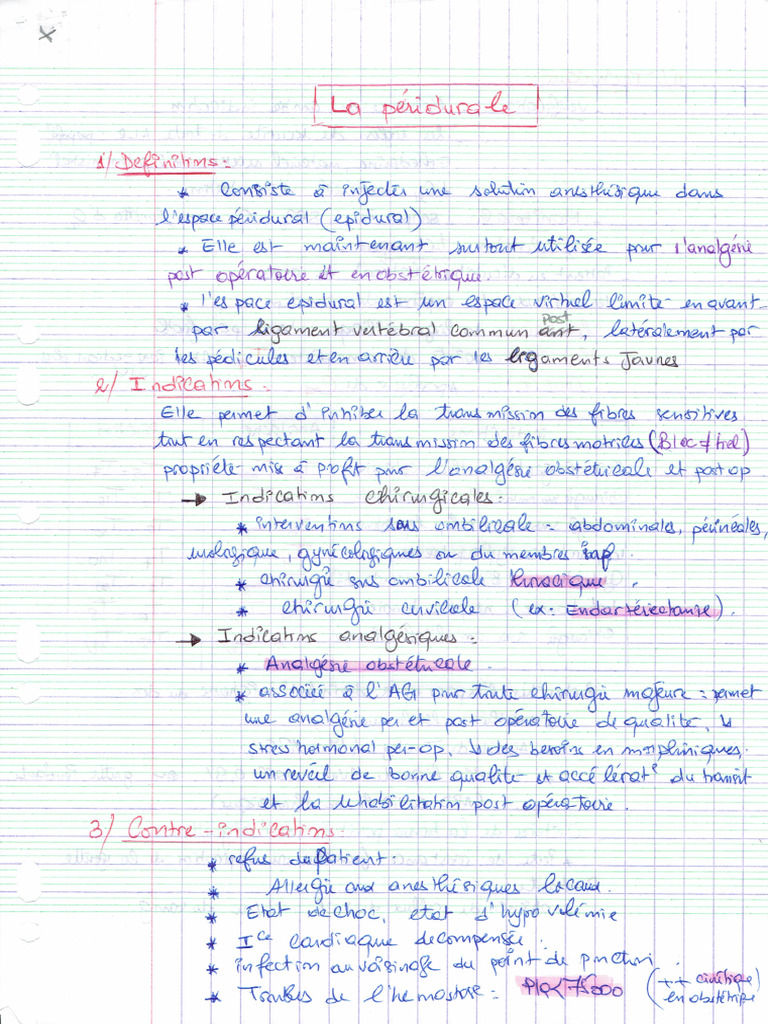 La péridurale
1/ Definitions :
* Consiste à injecter une solution anesthésique dans
l'espace péridural (epidural)
* Elle est maintenant surtout utilisée pour l'analgésie
post opératoire et en obstétrique.
* l'espace epidural est un espace virtuel limité en avant
post
par ligament vertébral commun ant, latéralement par
les pédicules et en arrière par les ligaments Jaunes
2/ Indications :
Elle permet d'inhiber la transmission des fibres sensitives
tout en respectant la transmission des fibres motrices (Bloc ≠tiel)
propriété mis à profit pour l'analgésie obstétricale et post op
→ Indications chirurgicales :
* interventions sous ombilicale : abdominales, périnéales,
urologique, gynécologiques ou du membres inf.
* chirurgie sus ombilicale thoracique.
* chirurgie cervicale (ex: Endartériectomie).
→ Indications analgésiques :
* Analgésie obstétricale.
* associée à l'AG pour toute chirurgie majeure : permet
une analgésie per et post opératoire de qualité, ↘
stress hormonal per-op, ↘ des besoins en morphiniques,
un reveil de bonne qualité et accélérat° du transit
et la réhabilitation post opératoire.
3/ Contre-indications :
* refus du patient :
* Allergie aux anesthésiques locaux.
* Etat de choc, etat d'hypovolémie
* Ice cardiaque decompensée.
* infection au voisinage du point de ponction.
* Troubles de l'hemostase : PLQ<75000 (++ cinétique
en obstétrique)